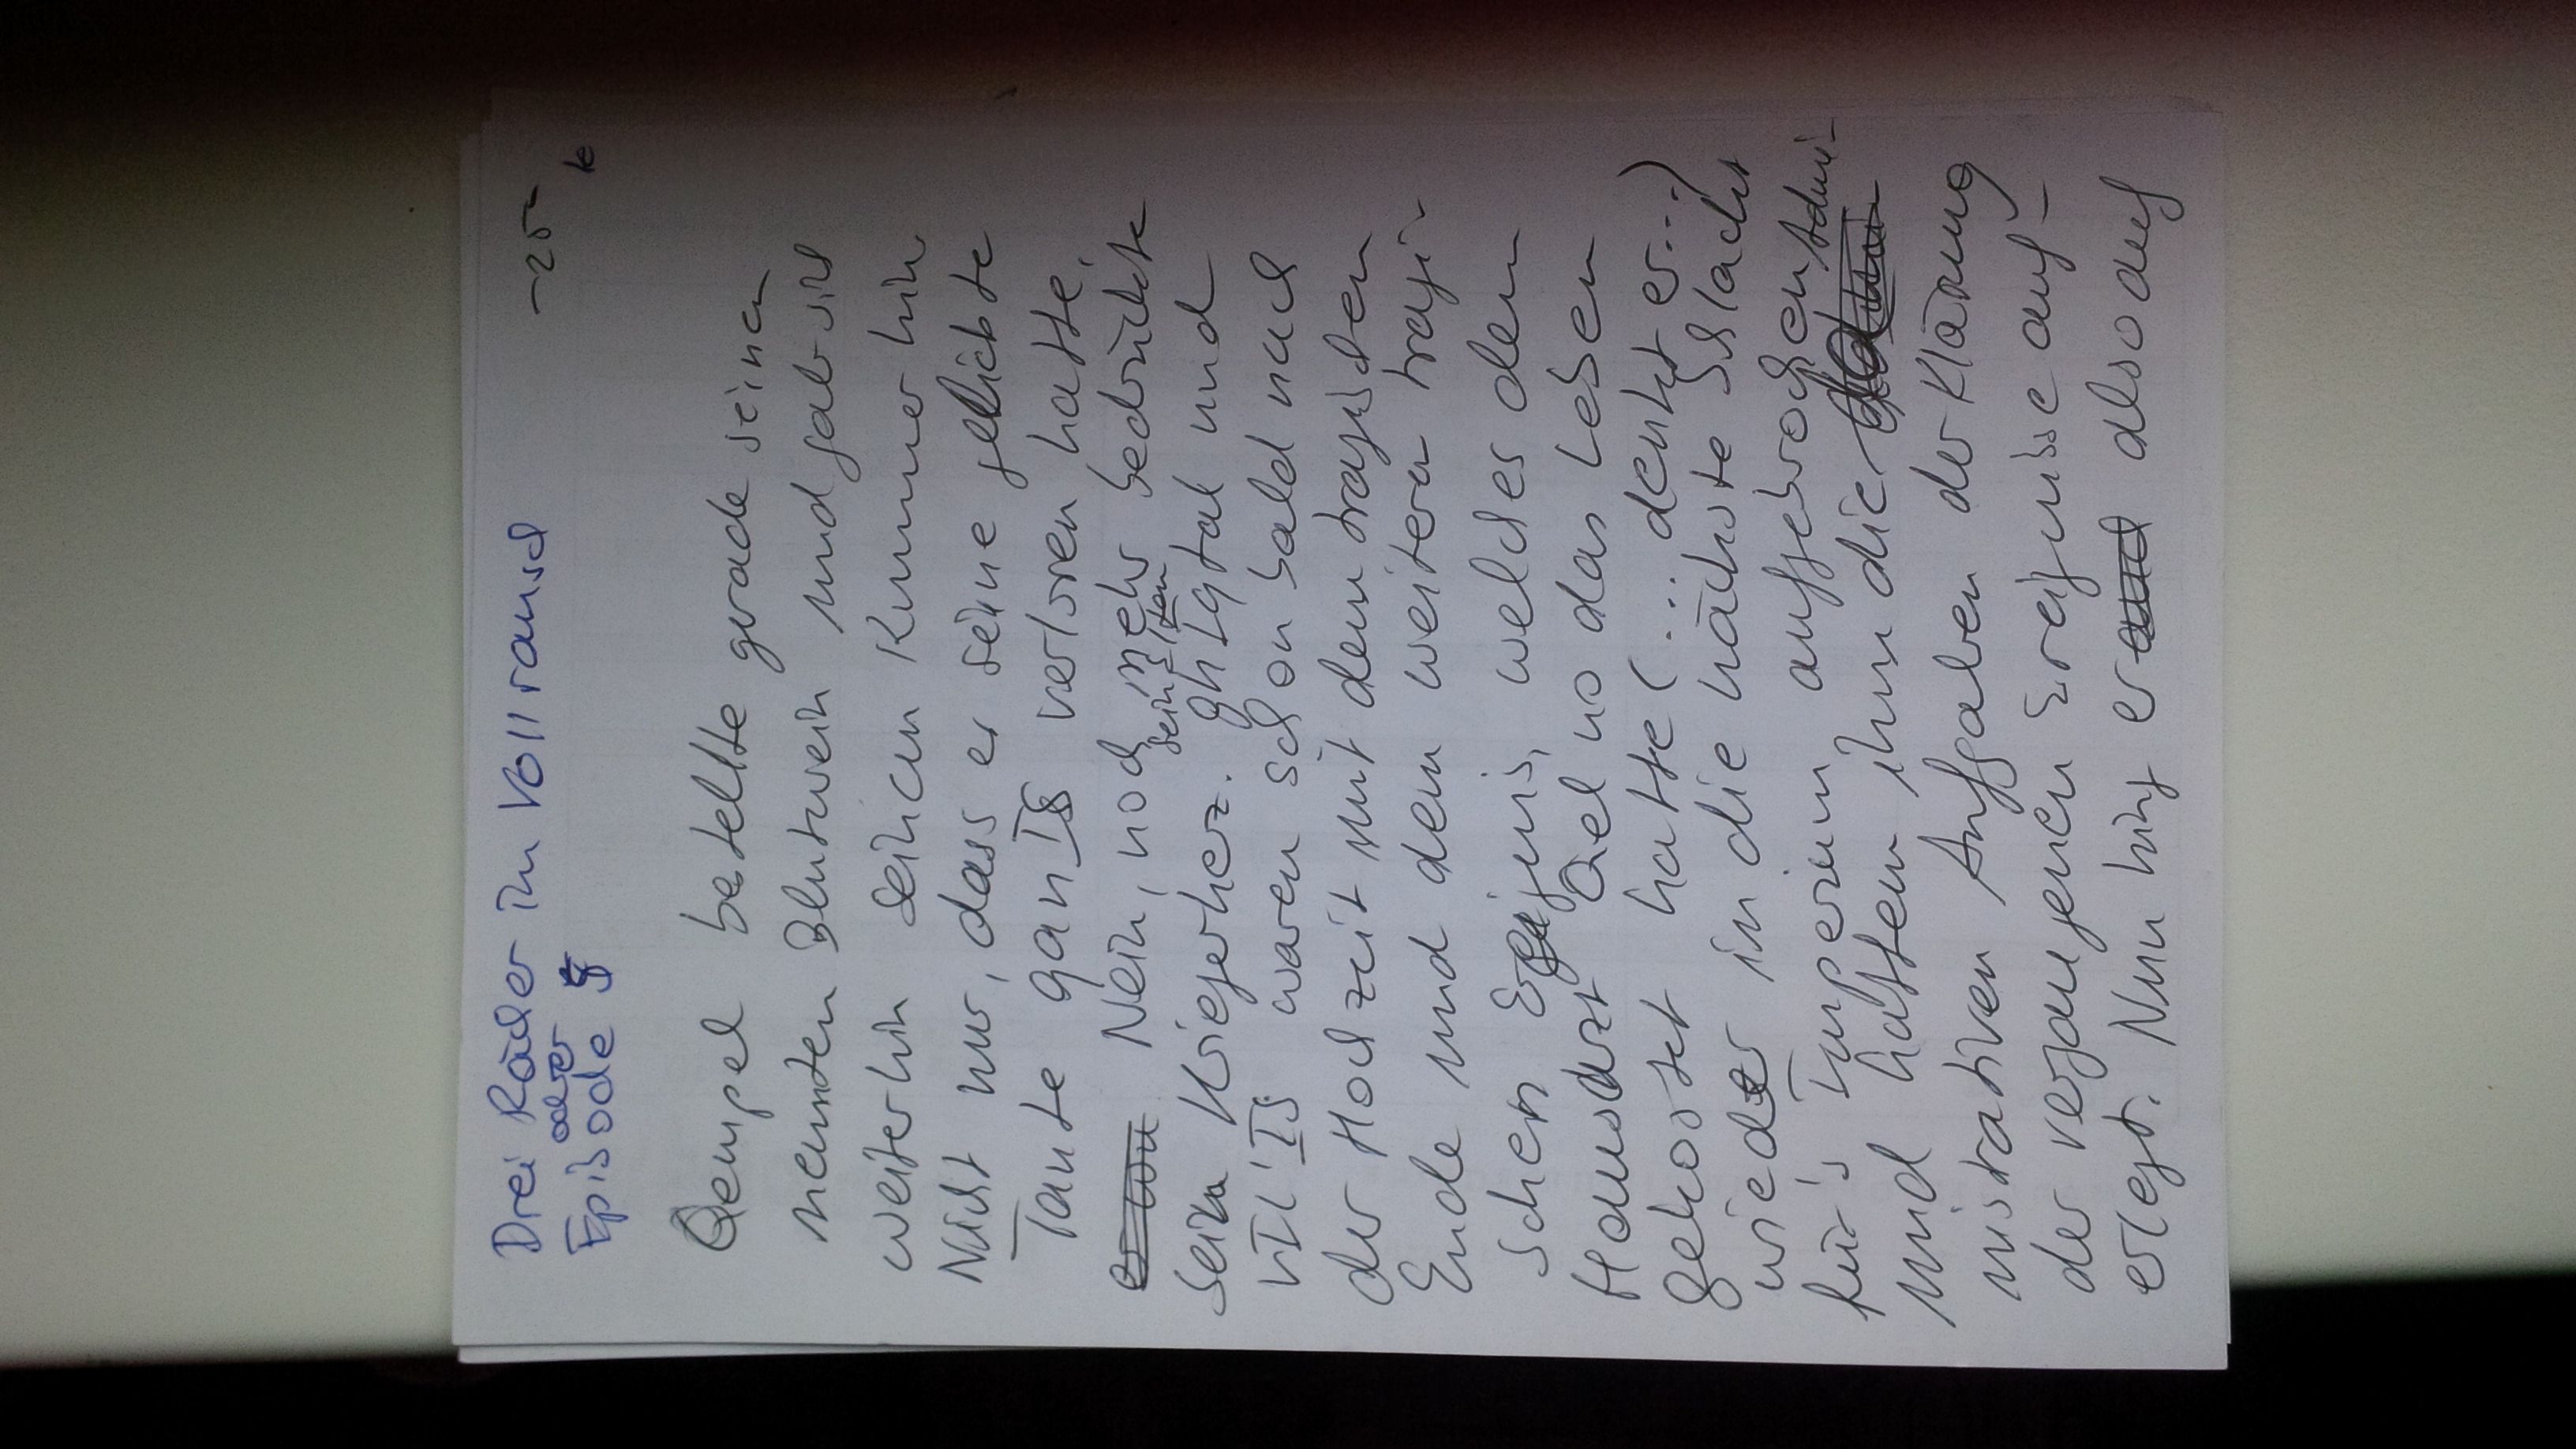 Drei Räder im Vollrausch
oder
Episode 5
-25-
Qempel bestellte gerade seinen
neunten Blutwein und gab sich
weiterhin seinem Kummer hin
Nicht nur, dass er seine geliebte
Tante Qan IS verloren hatte.
Nein, noch mehr bedrückte
sein Kriegerherz. Qh'Lqtal und
vIl'IS waren schon bald nach
der Hochzeit mit dem tragischen
Ende und dem weiteren tragi-
schen Ereignis, welches den
Hausarzt Qel'no das Leben
gekostet hatte (... denkt er...)
wieder in die nächste Schlacht
für's Imperium aufgebrochen
und hatten ihm die admi-
nistrativen Aufgaben der Klärung
der vergangenen Ereignisse auf-
erlegt. Nun hing er also auf